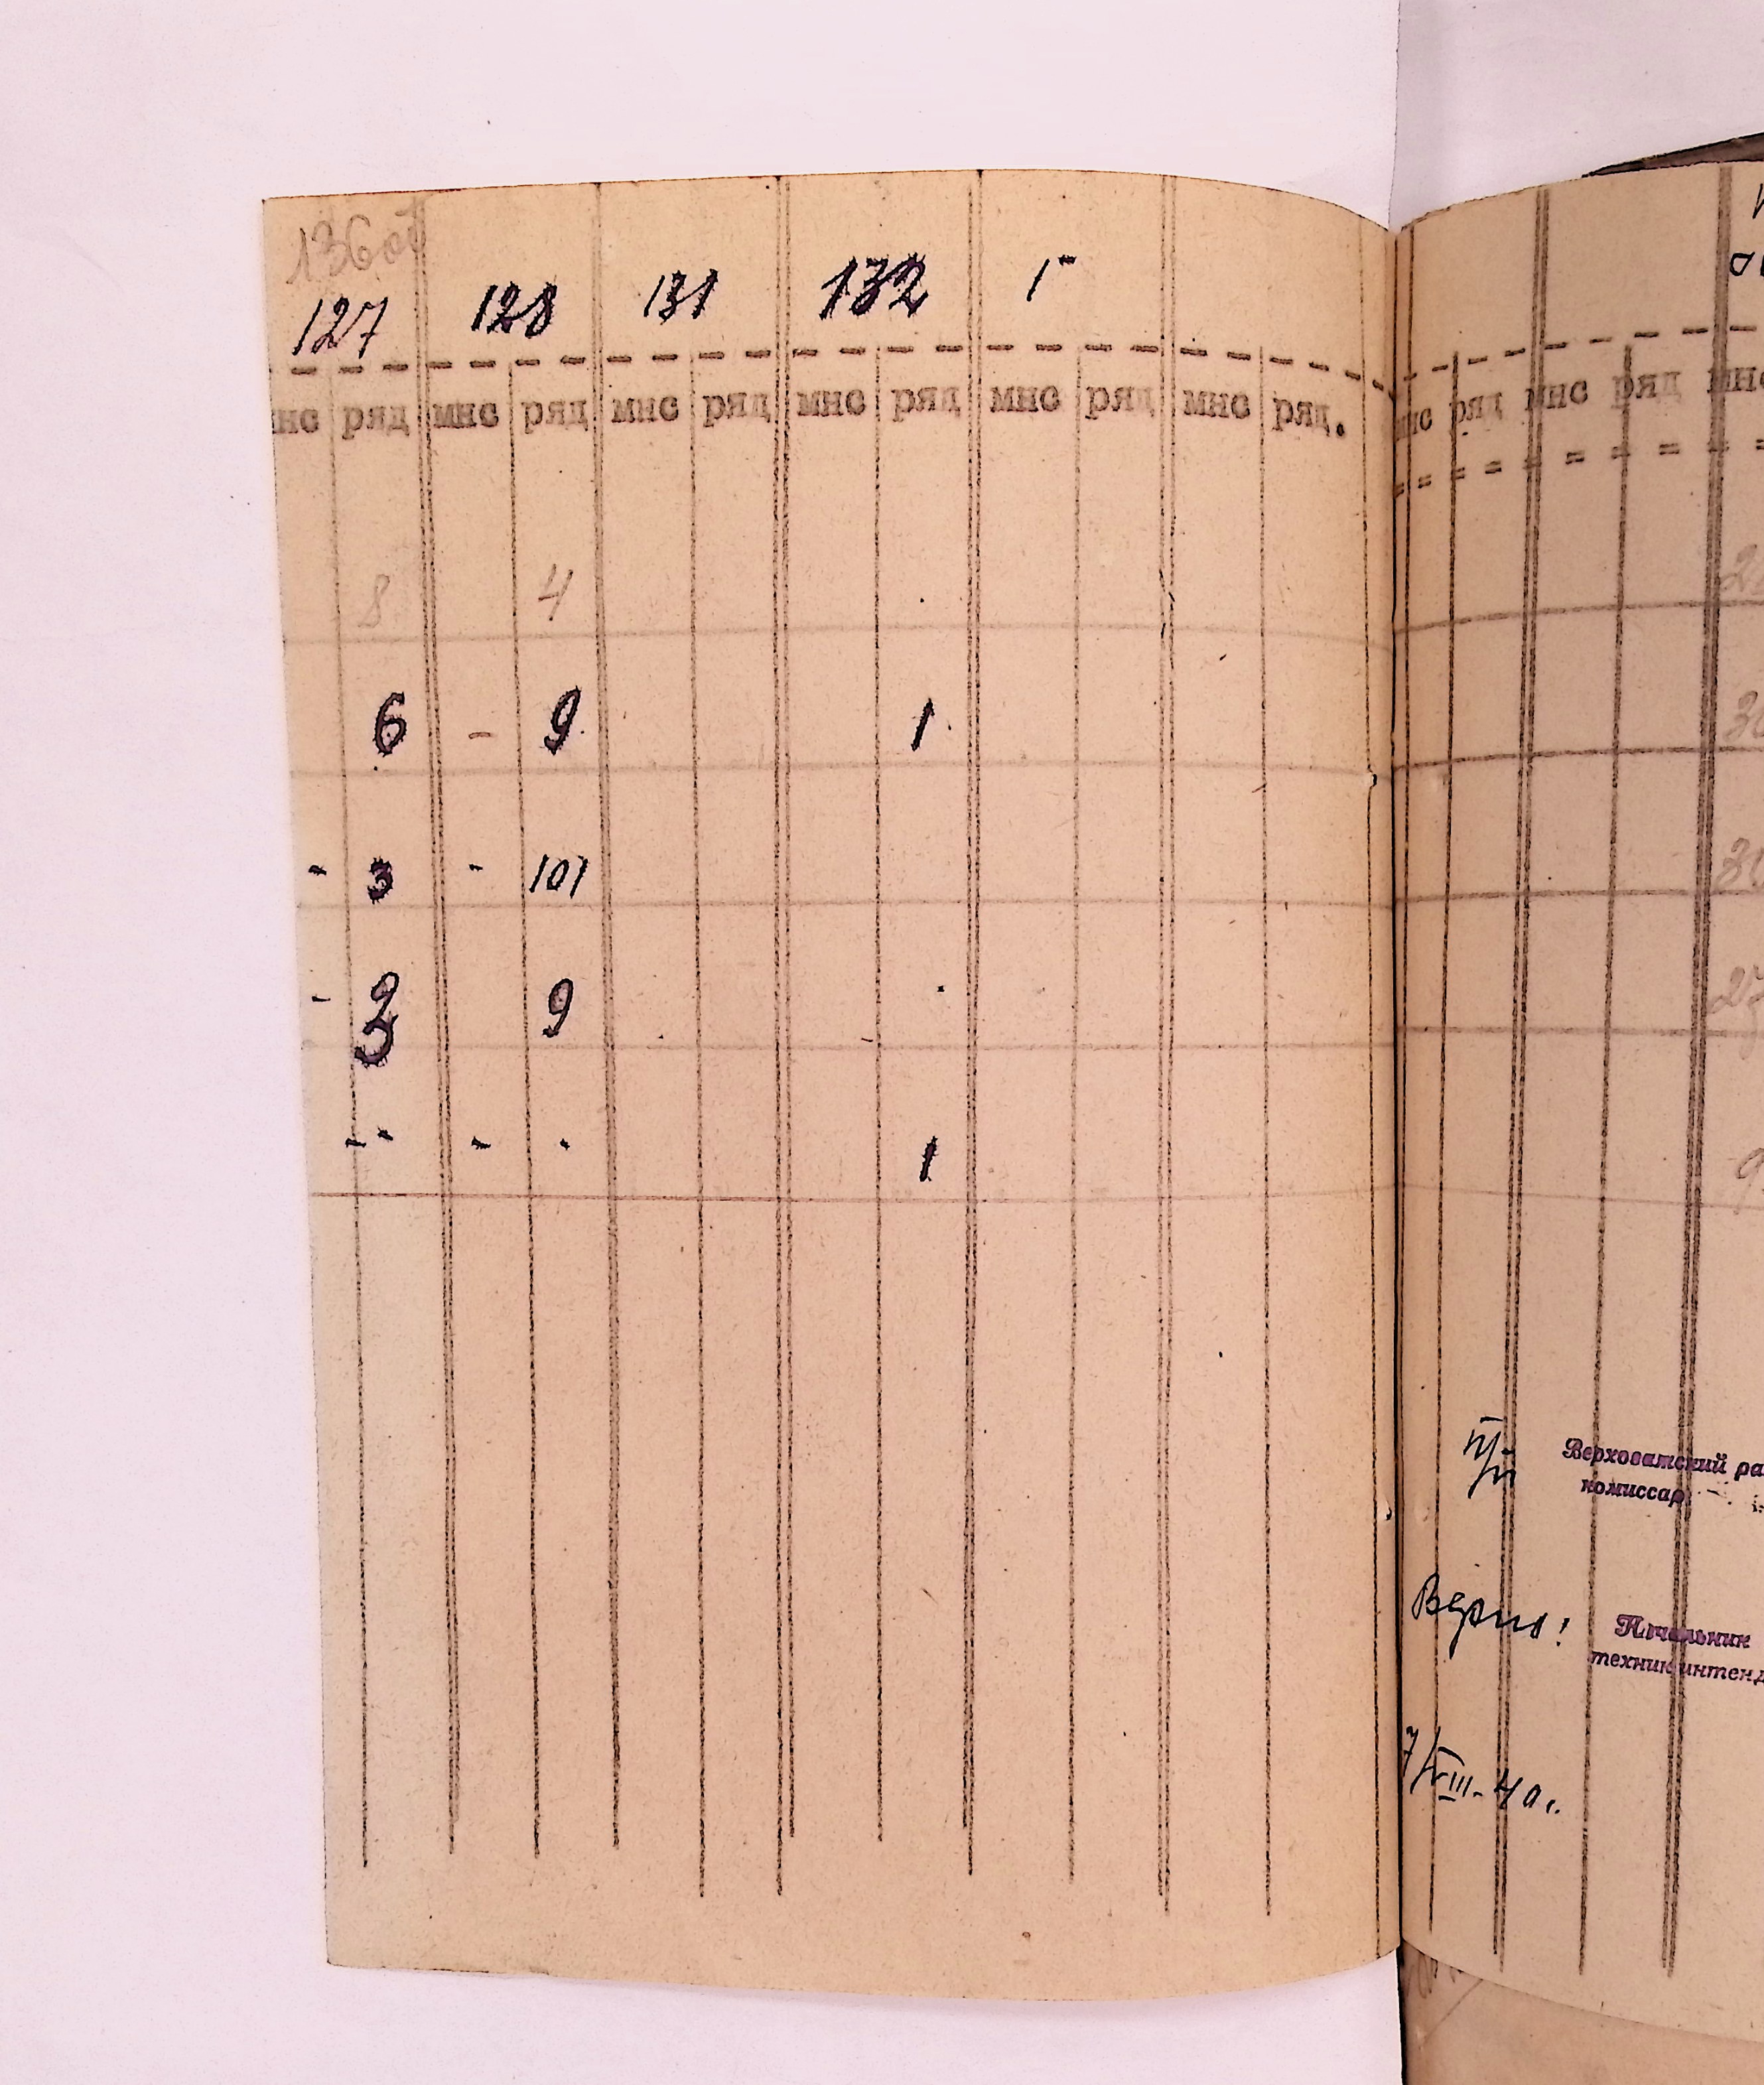 136об
127 128 131 132 1
нс ряд мнс ряд мнс ряд мнс ряд мнс ряд мнс ряд.
8 4
6 - 9 1
- 3 - 101
- 2 9
3
- - - . 1
нс ряд мнс ряд мнс
п/п
Верховатский ра
комиссар
Верно!
Начальник
техник интенд
7/VIII-40г.